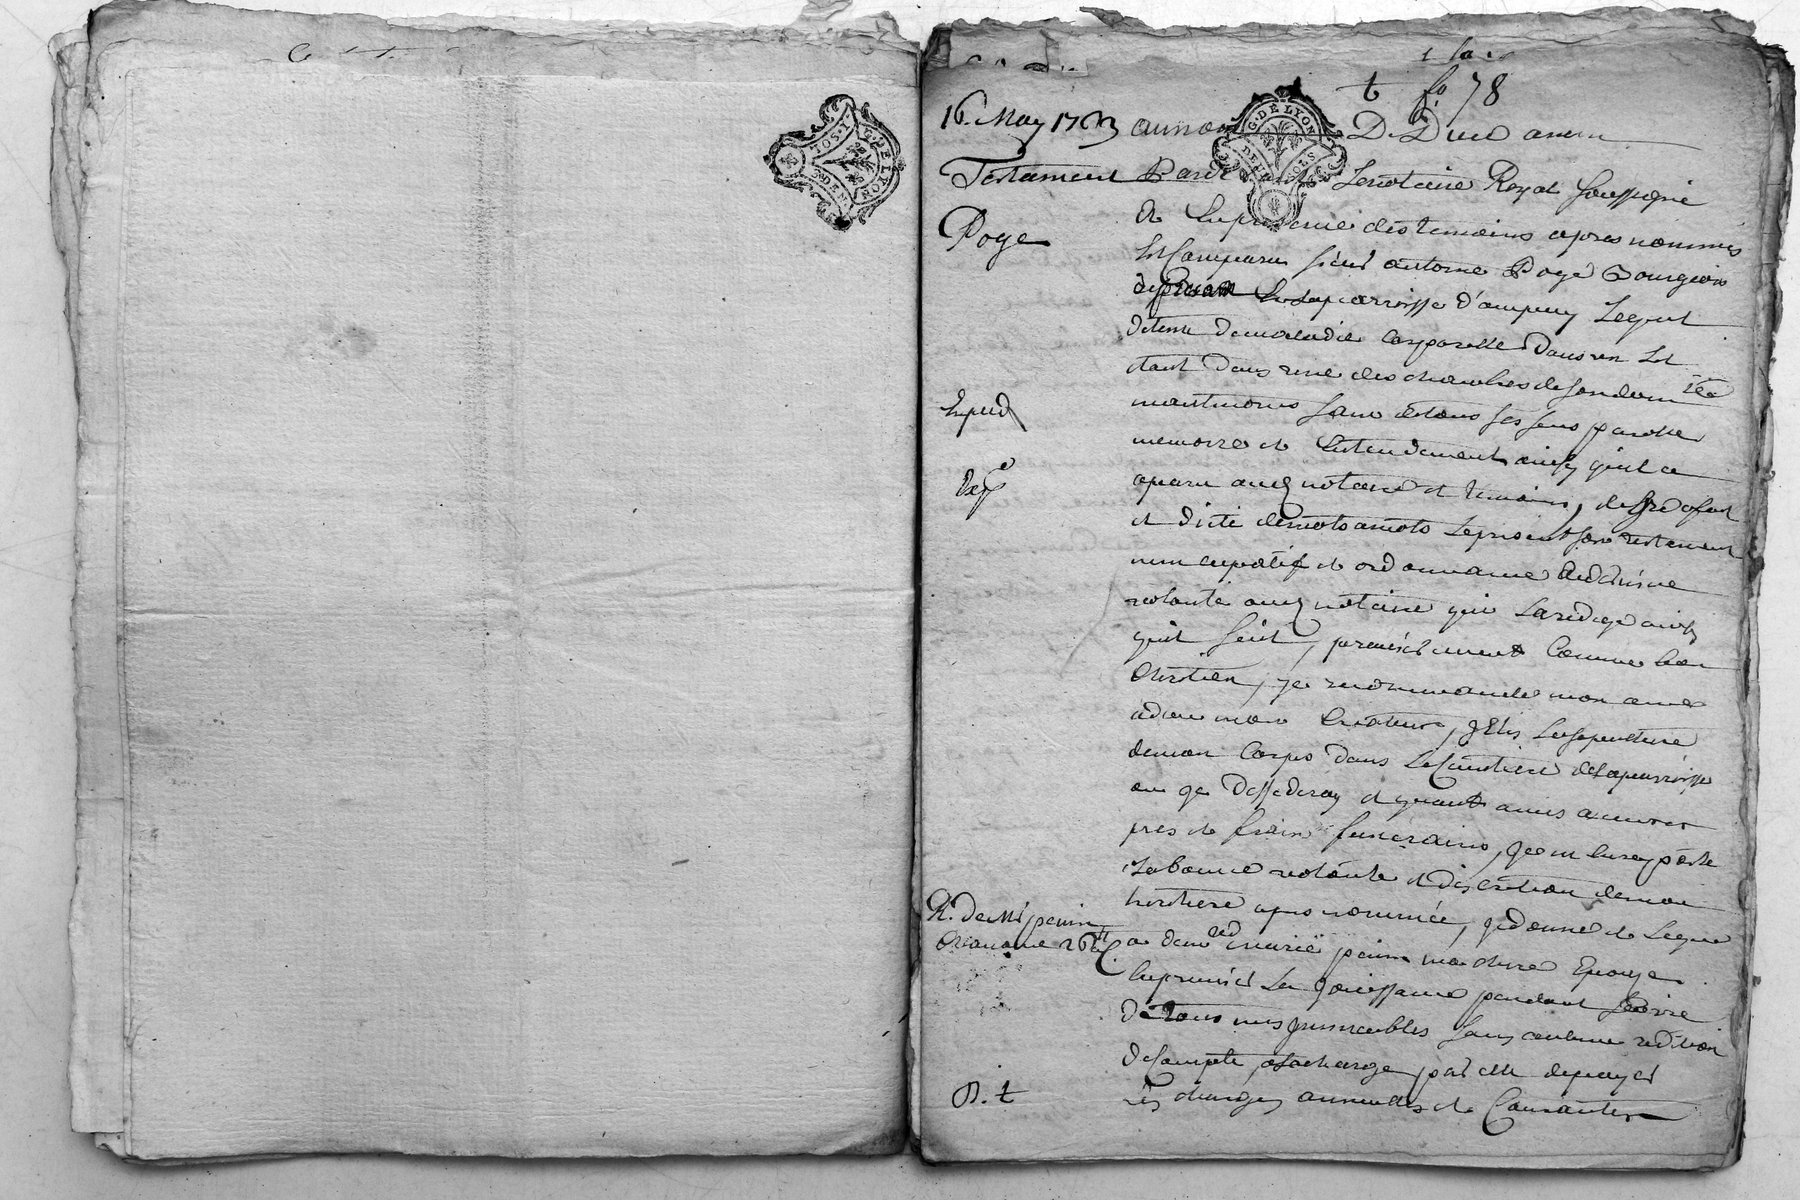 fo 78
16. May 1763 au nom De Dieu amen
Testament Pard Le notaire Royal soussigné
Poge
et En presence des temoins apres nommés
Est Comparu sieur antoine Poge Bourgeois
En la parroisse d'ampuy Lequel
detenu de maladie Corporelle Dans un Lit
etant Dans une des chambres de son dom le
Exped
neantmoins sain de tous ses sens parolle
memoire et Entendement ainsy qu'il a
aparu aud notaire et temoins, de Gré a fait
et dicté de mots a mots Le present son testament
nuncupatif et ordonnance de derniere
volonté aud notaire qui La redigé ainsy
quil suit, premierement Comme bon
Chretien, je recommande mon ame
a dieu mon Createur, jElis La sepulture
de mon Corps dans Le Cimetiere de la parroisse
ou je Decederay et quant a mes œuvres
pies et frais funeraires, je m'en raporte
a La bonne volonté et discretion de mon
heritiere apres nommée, je donne et Legue
R. de
a dem marie pain ma chere Epouse
La jouissance pendant sa vie
De tous mes jmmeubles sans aucune redition
de Compte, a la charge par elle de payer
Les charges annuelles et Courantes